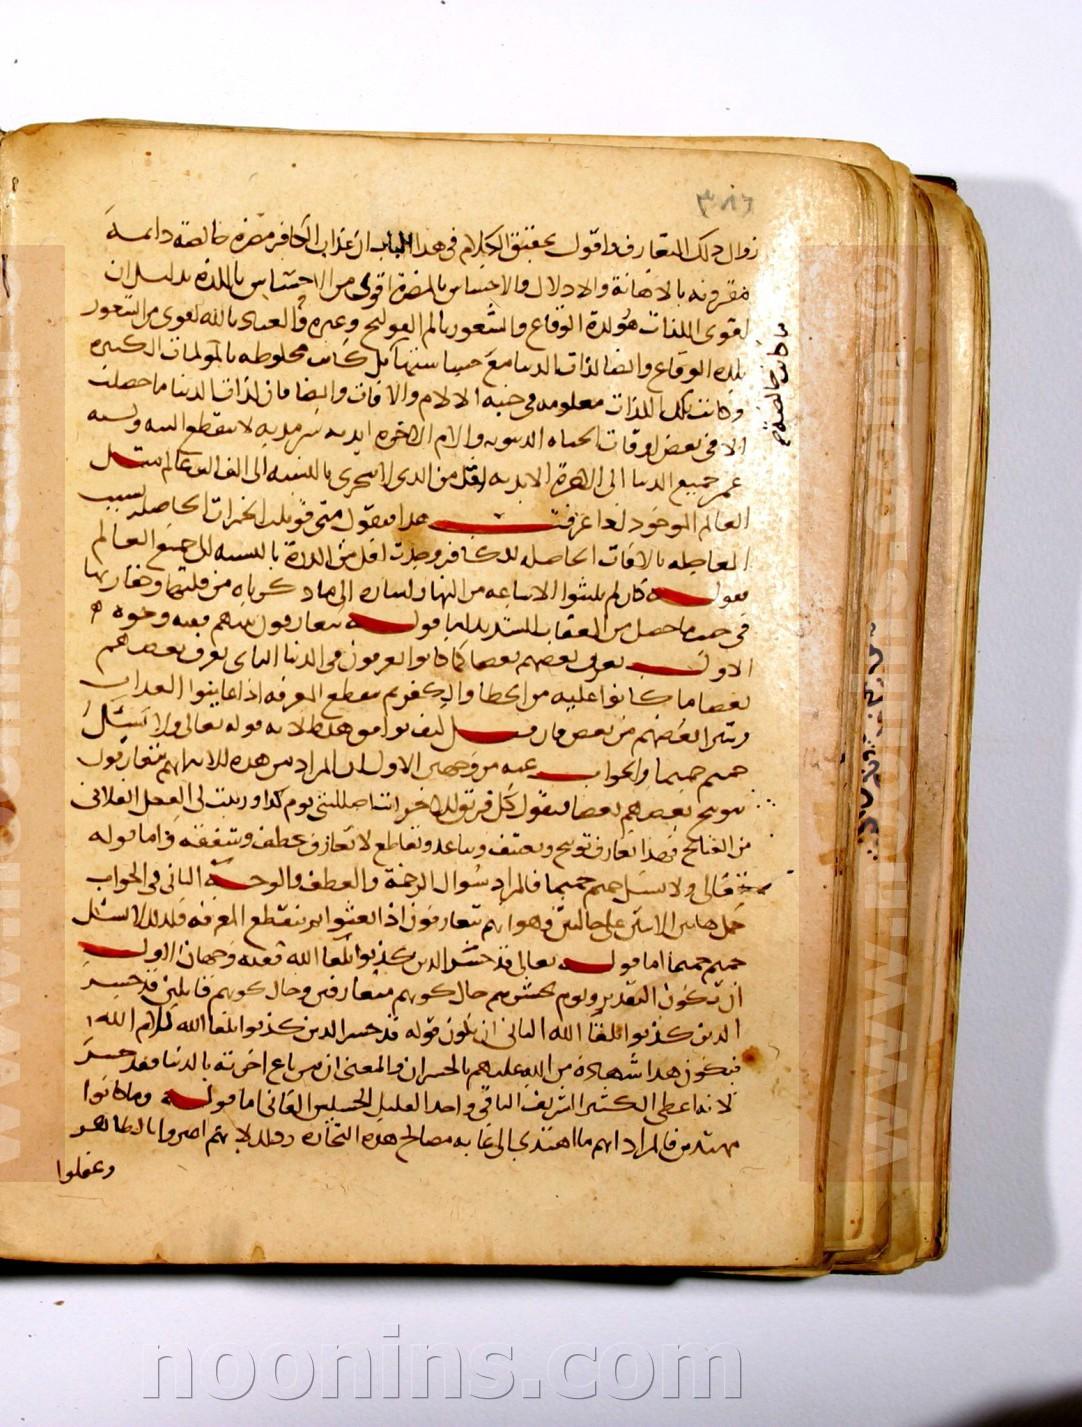 زوال ذلك التعارف واقول تحقيق الكلام فى هذا الباب ان عذاب الكافر مضرة خالصة دائمة
مقرونة بالاهانة والاذلال والاحساس بالمضرة اقوى من الاحساس باللذة بدليل ان
اقوى اللذات هو لذة الوقاع والشعور بالم القولنج وغيره والعياذ بالله اقوى من الشعور
بلذة الوقاع وايضا لذات الدنيا مع خساستها بل كانت مخلوطة بالمولمات الكثيرة
وكانت تلك اللذات معلومة فى جنبه الالام والافات وايضا فان لذات الدنيا ما حصلت
الا فى بعض اوقات الحياه الدنيويه والام الاخرة ابديه سرمديه لا تنقطع البته ونسبه
عمر جميع الدنيا الى الاخرة الابديه اقل من الجزء الذى لا يتجزى بالنسبه الى الف الف عالم مثل
العالم الموجود اذا عرفت هذا فنقول متى قوبلت الخيرات الحاصلة بسبب
العاجله بالافات الحاصله للكافر وجدت اقل من الذرة بالنسبه الى جميع العالم
فقوله كان لم يلبثوا الا ساعه من النهار اشارة الى ما ذكرناه من قلتها وحقارتها
فى جنب ما حصل من العقاب الشديد اما قوله يتعارفون بينهم ففيه وجوه
الاول يعرف بعضهم بعضا كما كانوا يعرفون فى الدنيا الثانى يعرف بعضهم
بعضا ما كانوا عليه من الخطا والكفر ثم تنقطع المعرفه اذا عاينوا العذاب
وتبرا بعضهم من بعض فان قيل كيف توافق هذه الايه قوله تعالى ولا يسئل
حميم حميما والجواب عنه من وجهين الاول ان المراد من هذه الايه انهم يتعارفون
بتوبيخ بعضهم بعضا فيقول كل فريق للاخر انت اضللتنى يوم كذا وزينت لى الفعل الفلانى
من القبائح فهذا تعارف توبيخ وتعنيف وتباعد وتقاطع لا تعارف عطف وشفقه واما قوله
تعالى ولا يسئل حميم حميما فالمراد سوال الرحمة والعطف والوجه الثانى فى الجواب
حمل هاتين الايتين على حالتين وهو انهم يتعارفون اذا بعثوا ثم تنقطع المعرفه فلذلك لا يسئل
حميم حميما اما قوله تعالى قد خسر الذين كذبوا بلقا الله ففيه وجهان الاول
ان تكون التقدير ويوم يحشرهم حال كونهم متعارفين وحال كونهم قايلين قد خسر
الذين كذبوا بلقا الله الثانى ان يكون قوله قد خسر الذين كذبوا بلقا الله كلام الله
فيكون هذا شهادة من الله عليهم بالخسران والمعنى ان من باع اخرته بالدنيا فقد خسر
لانه اعطى الكثير الشريف الباقى واخذ القليل الخسيس الفانى اما قوله وما كانوا
مهتدين فالمراد انهم ما اهتدى الى غايه مصالح هذه التجاره وذلك لانهم اصروا بالظاهر
وغفلوا
ما كانت خالصة
noonins.com